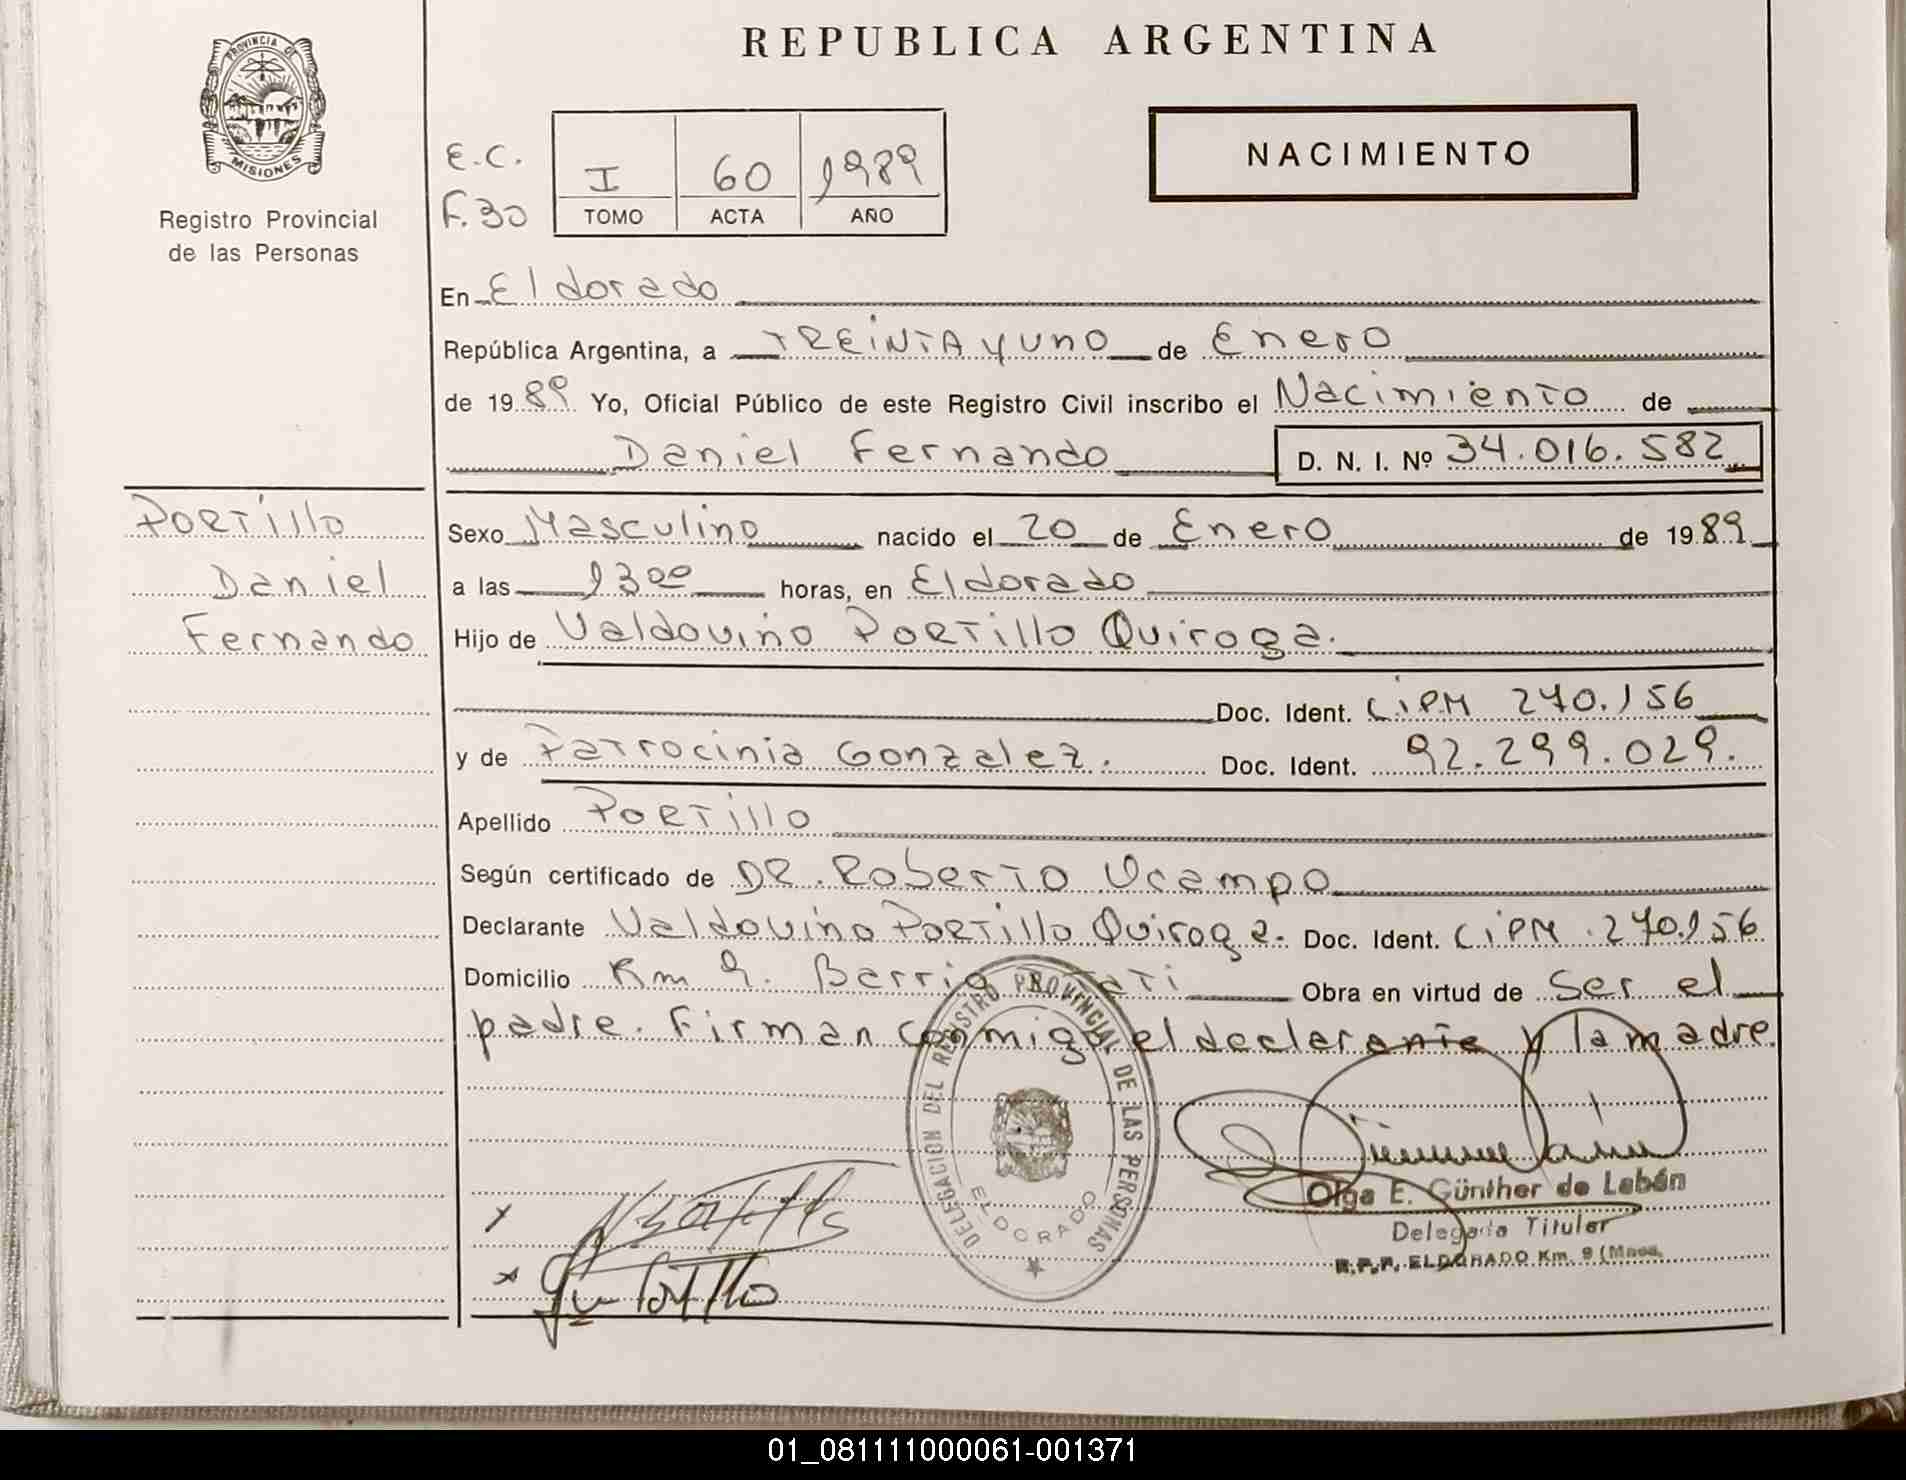 REPUBLICA ARGENTINA
PROVINCIA DE
MISIONES
Registro Provincial
de las Personas
E.C.
F.30
I 60 1989
TOMO ACTA AÑO
NACIMIENTO
En Eldorado
República Argentina, a TREINTA y UNO de Enero
de 1989 Yo, Oficial Público de este Registro Civil inscribo el Nacimiento de
Daniel Fernando D. N. I. Nº 34.016.582
Portillo
Daniel
Fernando
Sexo Masculino nacido el 20 de Enero de 1989
a las 13 00 horas, en Eldorado
Hijo de Valdovino Portillo Quiroga.
Doc. Ident. CiPM 270.156
y de Patrocinia Gonzalez. Doc. Ident. 92.299.029.
Apellido Portillo
Según certificado de DR. Roberto Ocampo
Declarante Valdovino Portillo Quiroga. Doc. Ident. CiPM 270.156
Domicilio Km 9. Barrio Obra en virtud de Ser el
padre. Firman conmigo el declarante y la madre.
DELEGACION DEL REGISTRO PROVINCIAL DE LAS PERSONAS
ELDORADO
Olga E. Günther de Labán
Delegada Titular
R.P.P. ELDORADO Km. 9 (Mnes.
x
x Portillo
01_081111000061-001371